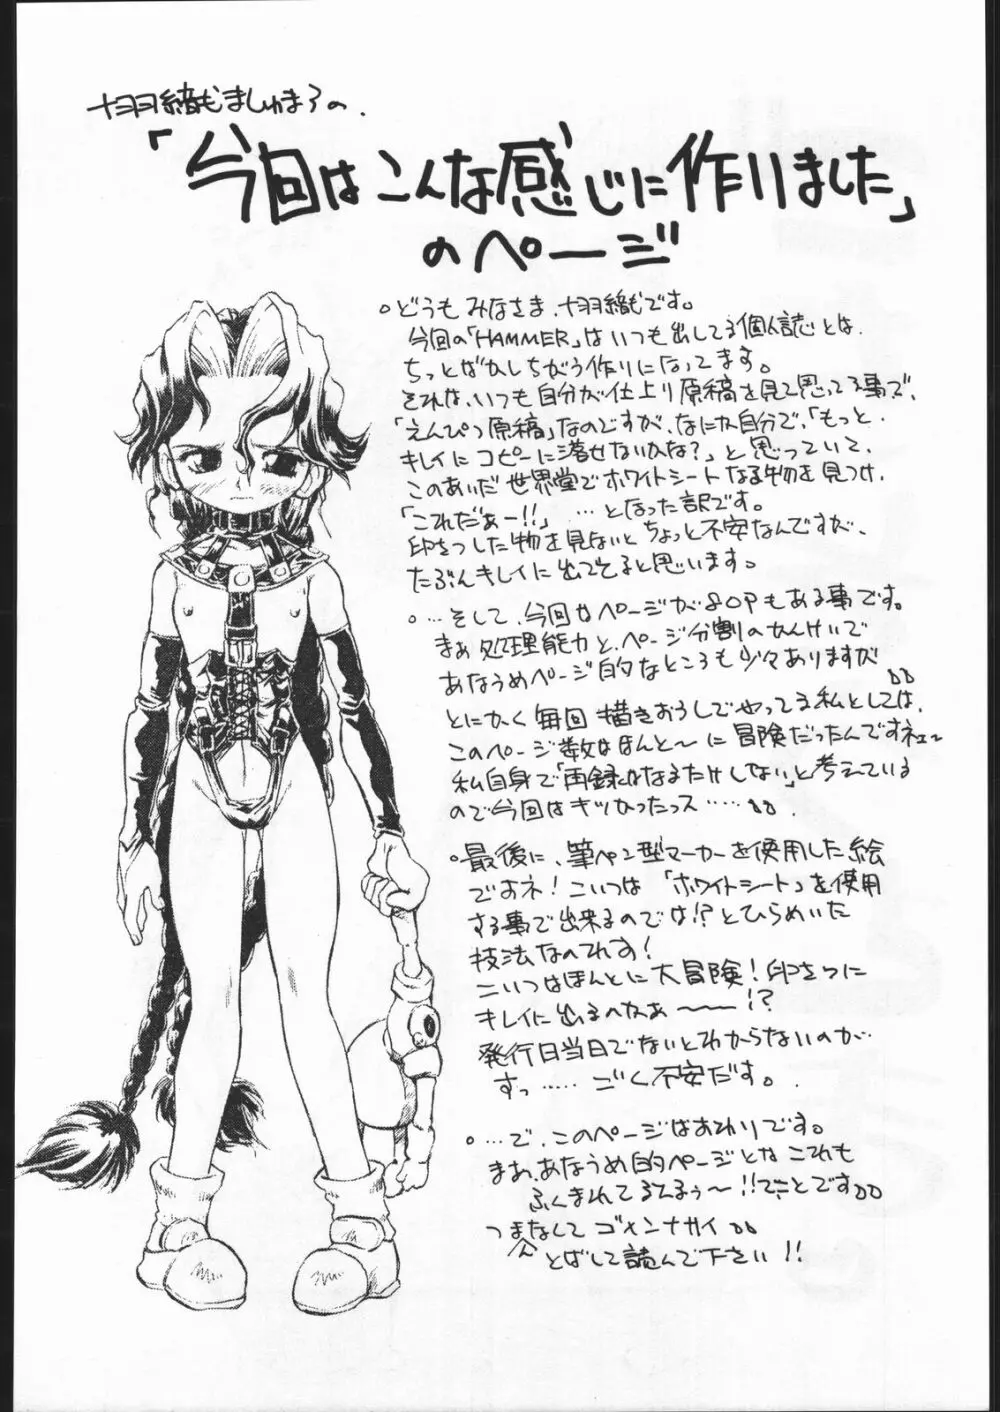 十羽織ましゅまろの、
「今回はこんな感じに作りました」
のページ
○どうもみなさま、十羽織です。
今回の「HAMMER」はいつも出してる個人誌とは、
ちっとばかしちがう作りになってます。
それは、いつも自分が仕上り原稿を見て思ってる事で、
「えんぴつ原稿」なのですが、なにか自分で、「もっと
キレイにコピーに落せないかな？」と思っていて、
このあいだ世界堂でホワイトシートなる物を見つけ、
「これだぁー!!」…となった訳です。
印さつした物を見ないとちょっと不安なんですが、
たぶんキレイに出てると思います。
○…そして、今回はページが80Pもある事です。
まぁ処理能力と、ページ分割のかんけいで
あなうめページ的なところも少々ありますが
とにかく毎回描きおろしでやってる私としては、
このページ数はほんと〜に冒険だったんですネェ〜
私自身で「再録はなるたけしない」と考えている
ので今回はキツかったっス……。
○最後に、筆ペン型マーカーを使用した絵
ですネ！こいつは「ホワイトシート」を使用
する事で出来るのでは!?とひらめいた
技法なのです！
こいつはほんとに大冒険！印さつに
キレイに出るかなぁ〜〜!?
発行日当日でないとわからないのが
すっ……ごく不安だす。
○…で、このページはおわりです。
まぁ、あなうめ的ページとかこれも
ふくまれてるんるぅ〜!!てことです
つまんなくてゴメンナサイ
とばして読んで下さい!!